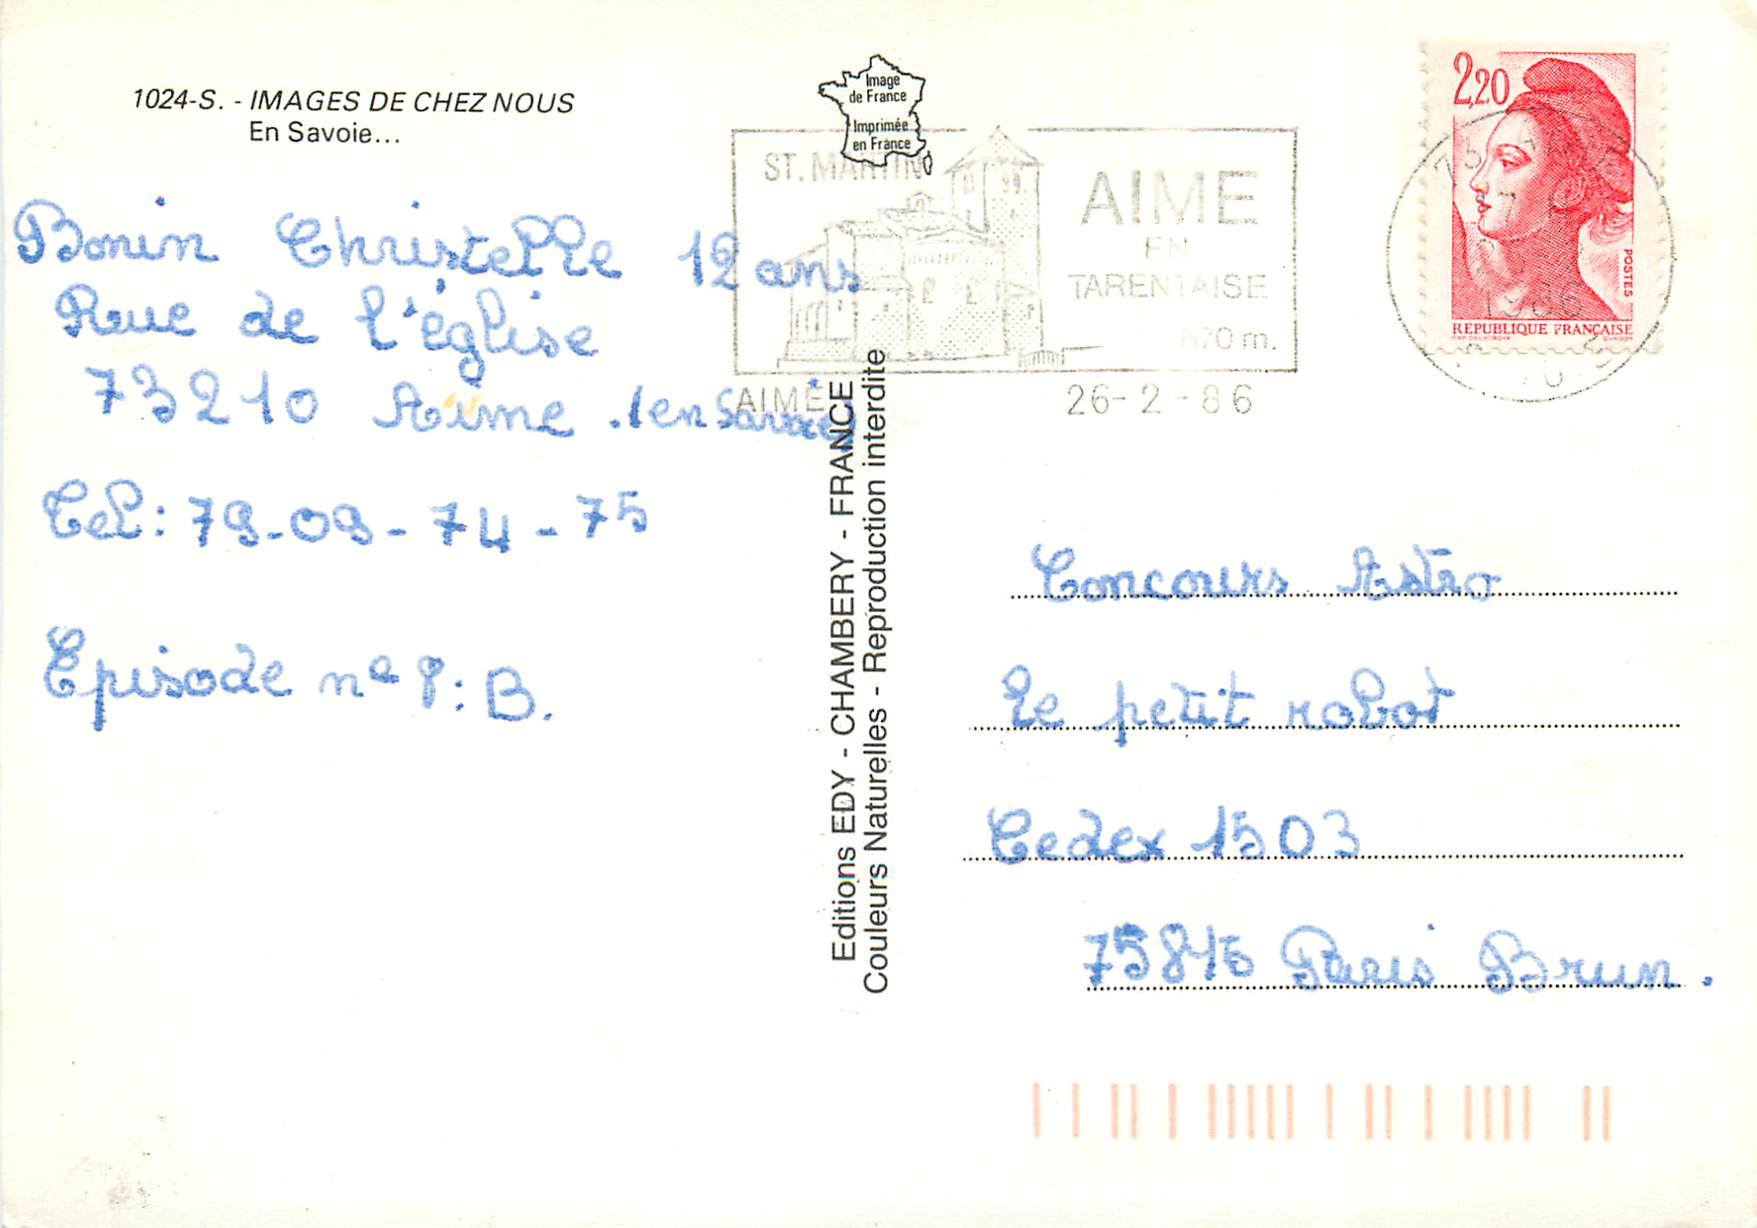 1024-S. - IMAGES DE CHEZ NOUS
En Savoie...
Image
de France
Imprimée
en France
ST. MARTIN
AIME
EN
TARENTAISE
670 m.
AIME
26-2-86
2,20
POSTES
REPUBLIQUE FRANÇAISE
1986
Bonin Christelle 12 ans
Rue de l'église
73210 Aime (en Savoie)
Tel: 79-09-74-75
Episode n° 8: B.
Editions EDY - CHAMBERY - FRANCE
Couleurs Naturelles - Reproduction interdite
Concours Astro
le petit robot
Cedex 1503
75846 Paris Brun.